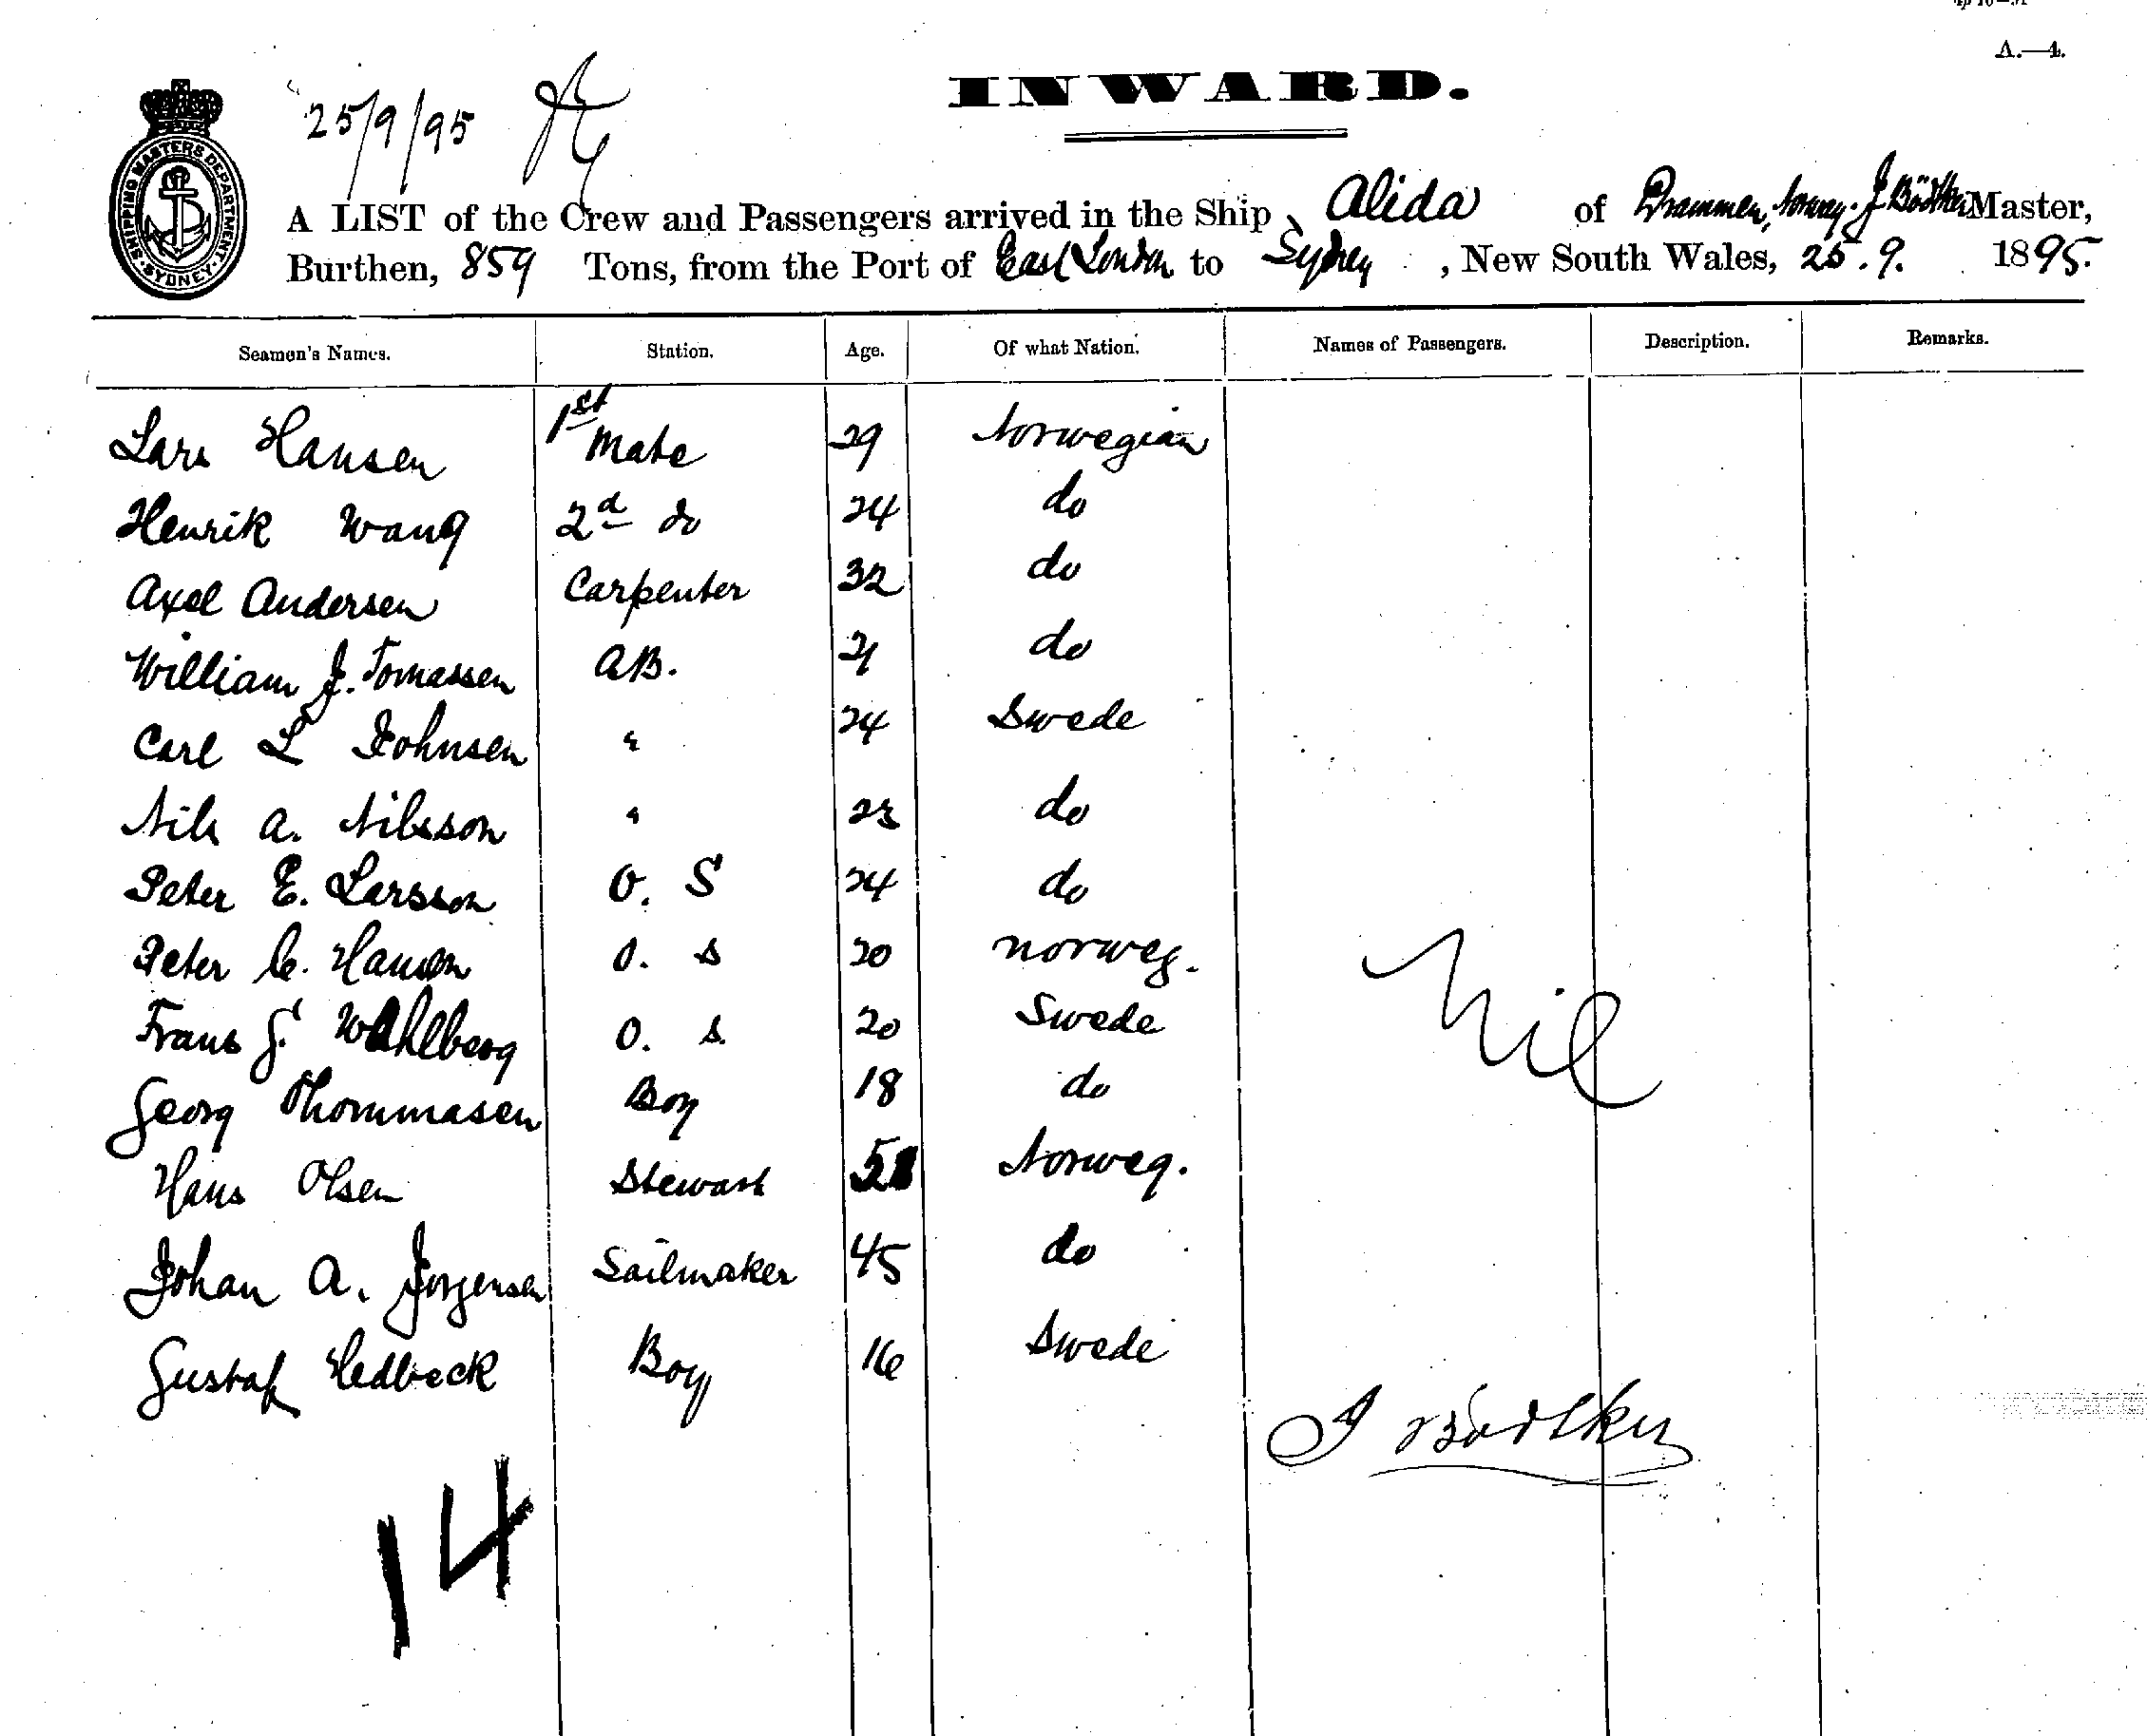 A.—4.
25/9/95
INWARD.
SHIPPING MASTERS DEPARTMENT · SYDNEY ·
A LIST of the Crew and Passengers arrived in the Ship Alida of Drammen, Norway. J Bödtker Master,
Burthen, 859 Tons, from the Port of East London to Sydney, New South Wales, 25.9. 1895.
Seamen's Names. Station. Age. Of what Nation. Names of Passengers. Description. Remarks.
Lars Hansen 1st Mate 29 Norwegian
Henrik Wang 2d do 24 do
Axel Andersen Carpenter 32 do
William J. Tomassen AB. 21 do
Carl L Johnsen " 24 Swede
Nils A. Nilsson " 23 do
Peter E. Larsson O. S 24 do
Peter C. Hansen O. S 20 Norweg.
Frans G. Wahlberg O. S. 20 Swede
Georg Thommasen Boy 18 do
Hans Olsen Steward Norweg.
Johan A. Jorgensen Sailmaker 45 do
Gustaf Hedbeck Boy 16 Swede
Nil
J Bödtker
14